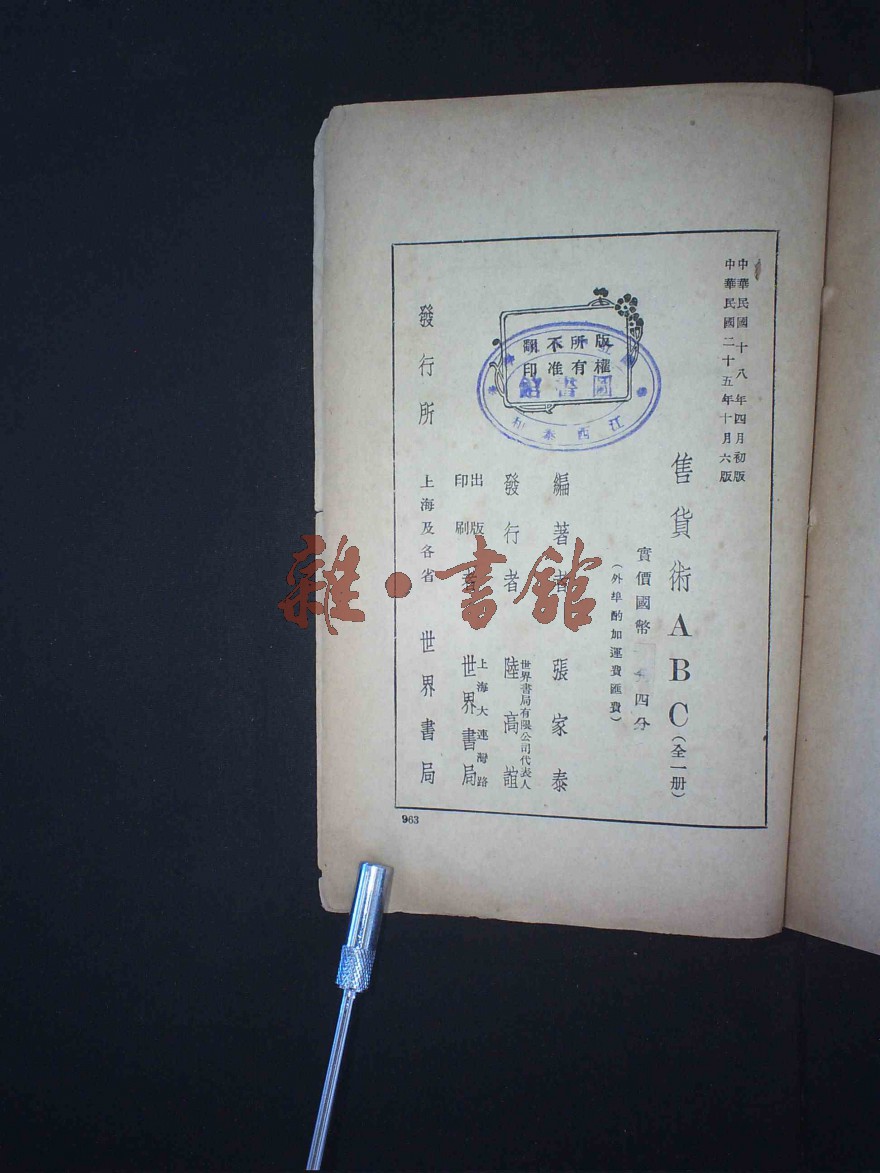 中華民國十八年四月初版
中華民國二十五年十月六版
售貨術ABC(全一册)
實價國幣 四分
(外埠酌加運費匯費)
版權所有不准翻印
圖書館
江西泰和
編著者 張家泰
發行者 世界書局有限公司代表人 陸高誼
出版印刷者 上海大連灣路 世界書局
發行所 上海及各省 世界書局
963
雜·書館